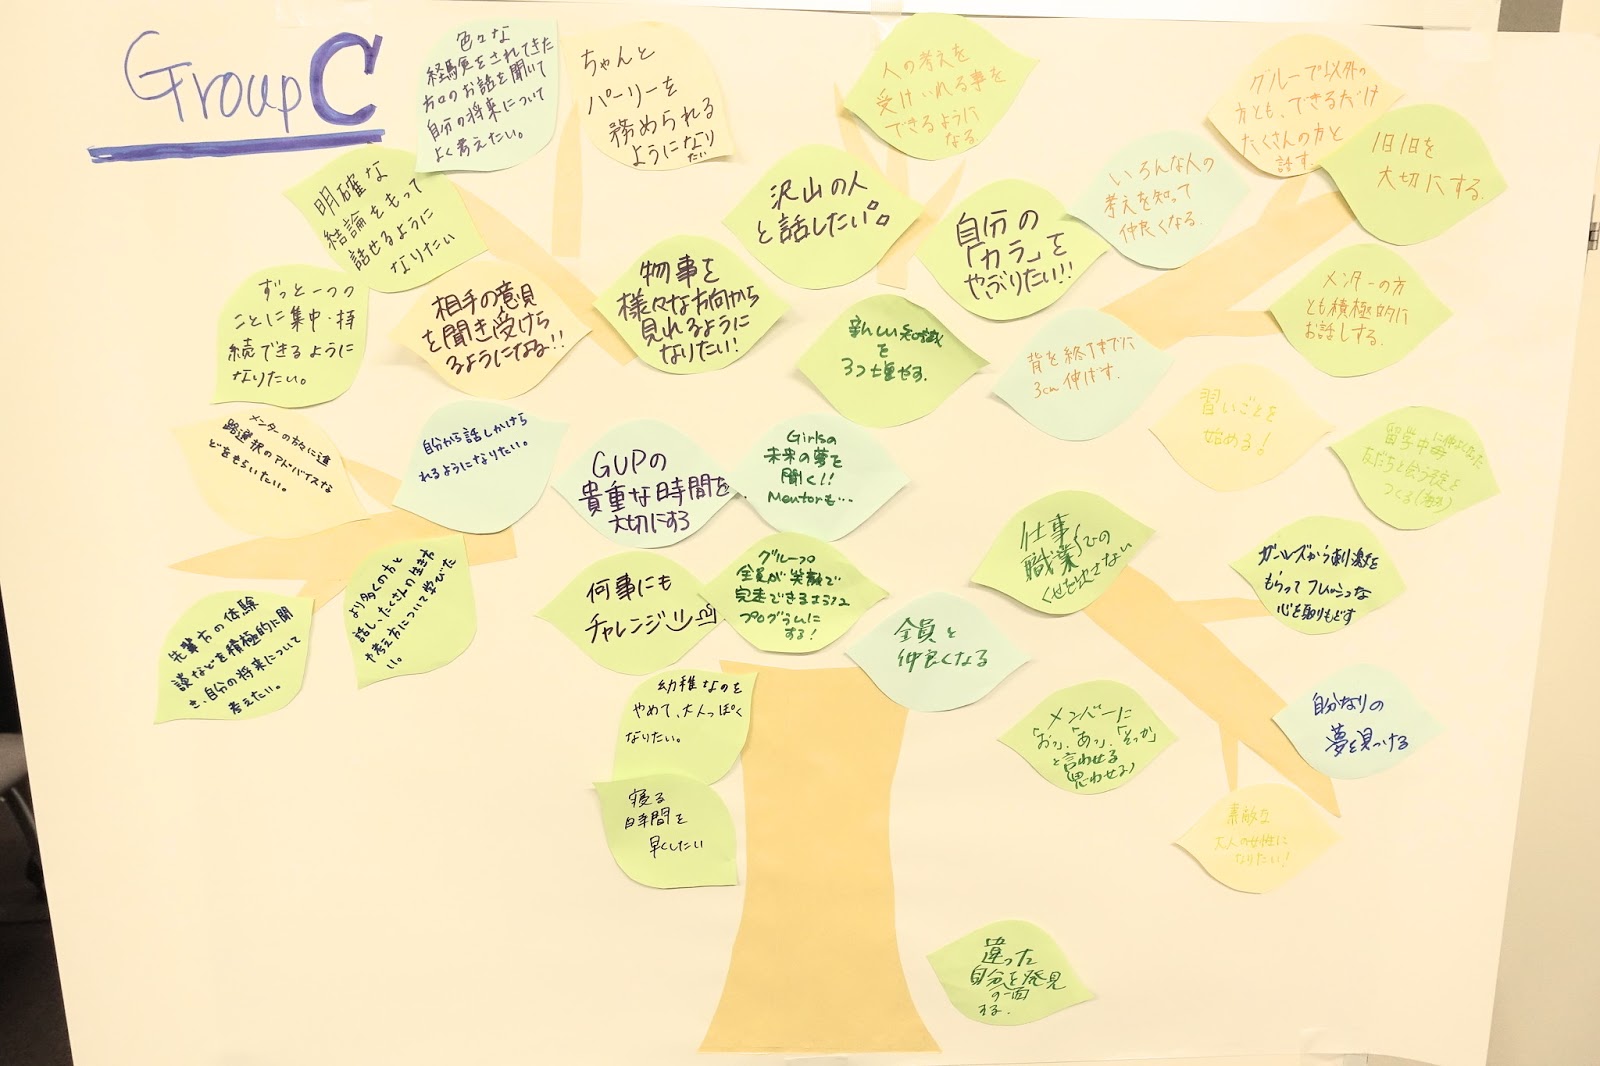 Group C
色々な
経験をされてきた
方々のお話を聞いて
自分の将来について
よく考えたい。
ちゃんと
パーリーを
務められる
ようになり
たい
人の考えを
受けいれる事を
できるように
なる
グループ以外の
方とも、できるだけ
たくさんの方と
話す。
1日1日を
大切にする。
明確な
結論をもって
話せるように
なりたい
沢山の人
と話したい。
自分の
「カラ」を
やぶりたい!!
いろんな人の
考えを知って
仲良くなる。
ずっと一つの
ことに集中・持
続できるように
なりたい。
相手の意見
を聞き受けら
るようになる!!
物事を
様々な方向から
見れるように
なりたい!
新しい知識
を
3つ増やす。
背を終了までに
3cm伸ばす。
メンターの方
とも積極的に
お話しする。
メンターの方々に進
路選択のアドバイスな
どをもらいたい。
自分から話しかけら
れるようになりたい。
GUPの
貴重な時間を
大切にする
Girlsの
未来の夢を
聞く!!
Mentorも…
習いごとを
始める!
留学中に仲よくなった
友だちと会う予定を
つくる
先輩方の体験
談などを積極的に聞
き、自分の将来について
考えたい。
より多くの方と
話し、たくさんの生き方
や考え方について学びた
い。
何事にも
チャレンジ
グループ
全員が笑顔で
完走できるような
プログラムに
する!
仕事
職業
くせを出さない
ガールズから刺激を
もらってフレッシュな
心を取りもどす
全員と
仲良くなる
幼稚なのを
やめて、大人っぽく
なりたい。
メンバーに
「おっ」、「あっ」、「そっか」
と言わせる
(思わせる)
自分なりの
夢を見つける
寝る
時間を
早くしたい
素敵な
大人の女性に
なりたい!
違った
自分を発見
の一面
する。